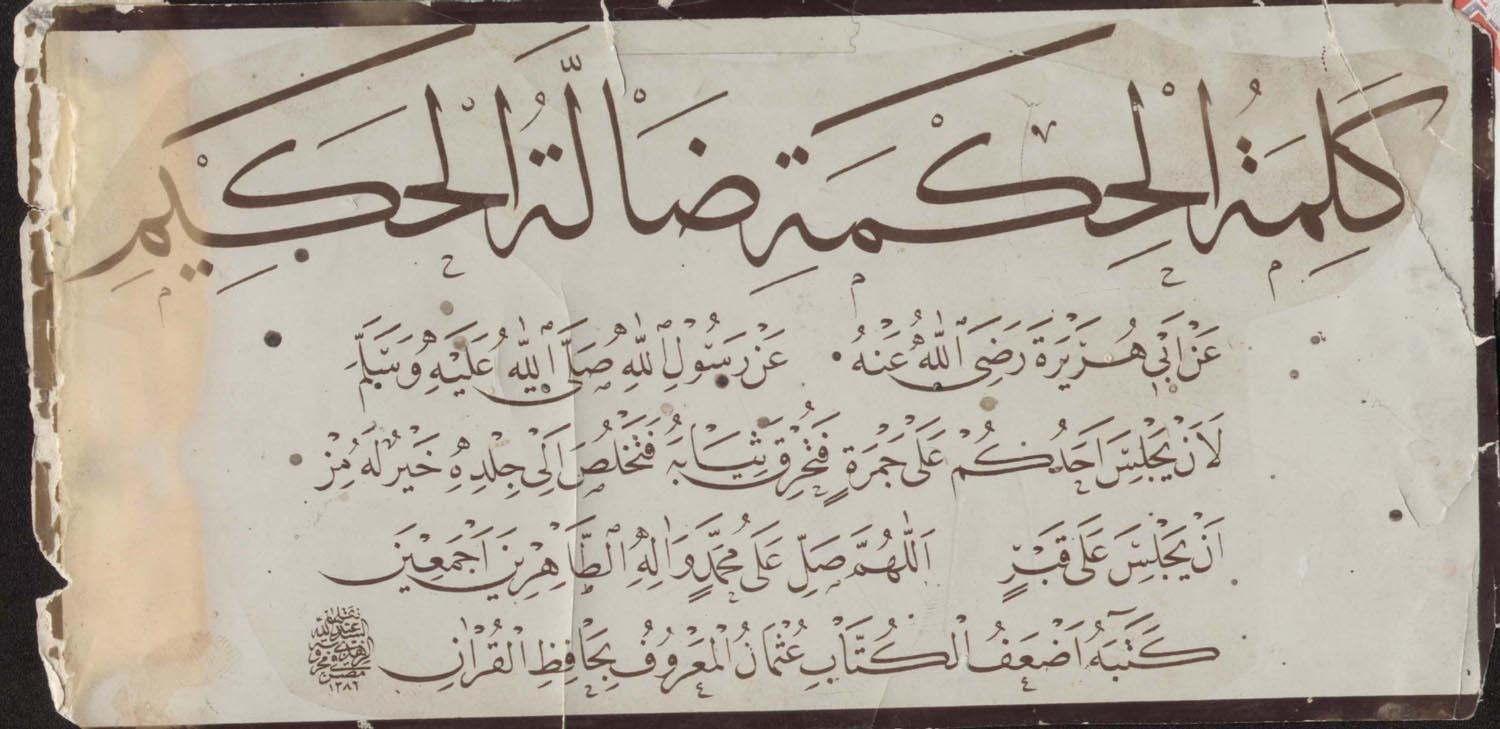 كَلِمَةُ الْحِكْمَةِ ضَالَّةُ الْحَكِيْمِ
عَنْ اَبِى هُرَيْرَةَ رَضِىَ اللّٰهُ عَنْهُ عَنْ رَسُوْلِ اللّٰهِ صَلَّى اللّٰهُ عَلَيْهِ وَسَلَّمَ
لَاَنْ يَجْلِسَ اَحَدُكُمْ عَلَى جَمْرَةٍ فَتَحْرِقَ ثِيَابَهُ فَتَخْلُصَ اِلَى جِلْدِهِ خَيْرٌ لَهُ مِنْ
اَنْ يَجْلِسَ عَلَى قَبْرٍ اَللّٰهُمَّ صَلِّ عَلَى مُحَمَّدٍ وَاٰلِهِ الطَّاهِرِيْنَ اَجْمَعِيْنَ
كَتَبَهُ اَضْعَفُ الْكُتَّابِ عُثْمَانُ الْمَعْرُوْفُ بِحَافِظِ الْقُرْاٰنِ
١٣٨٦